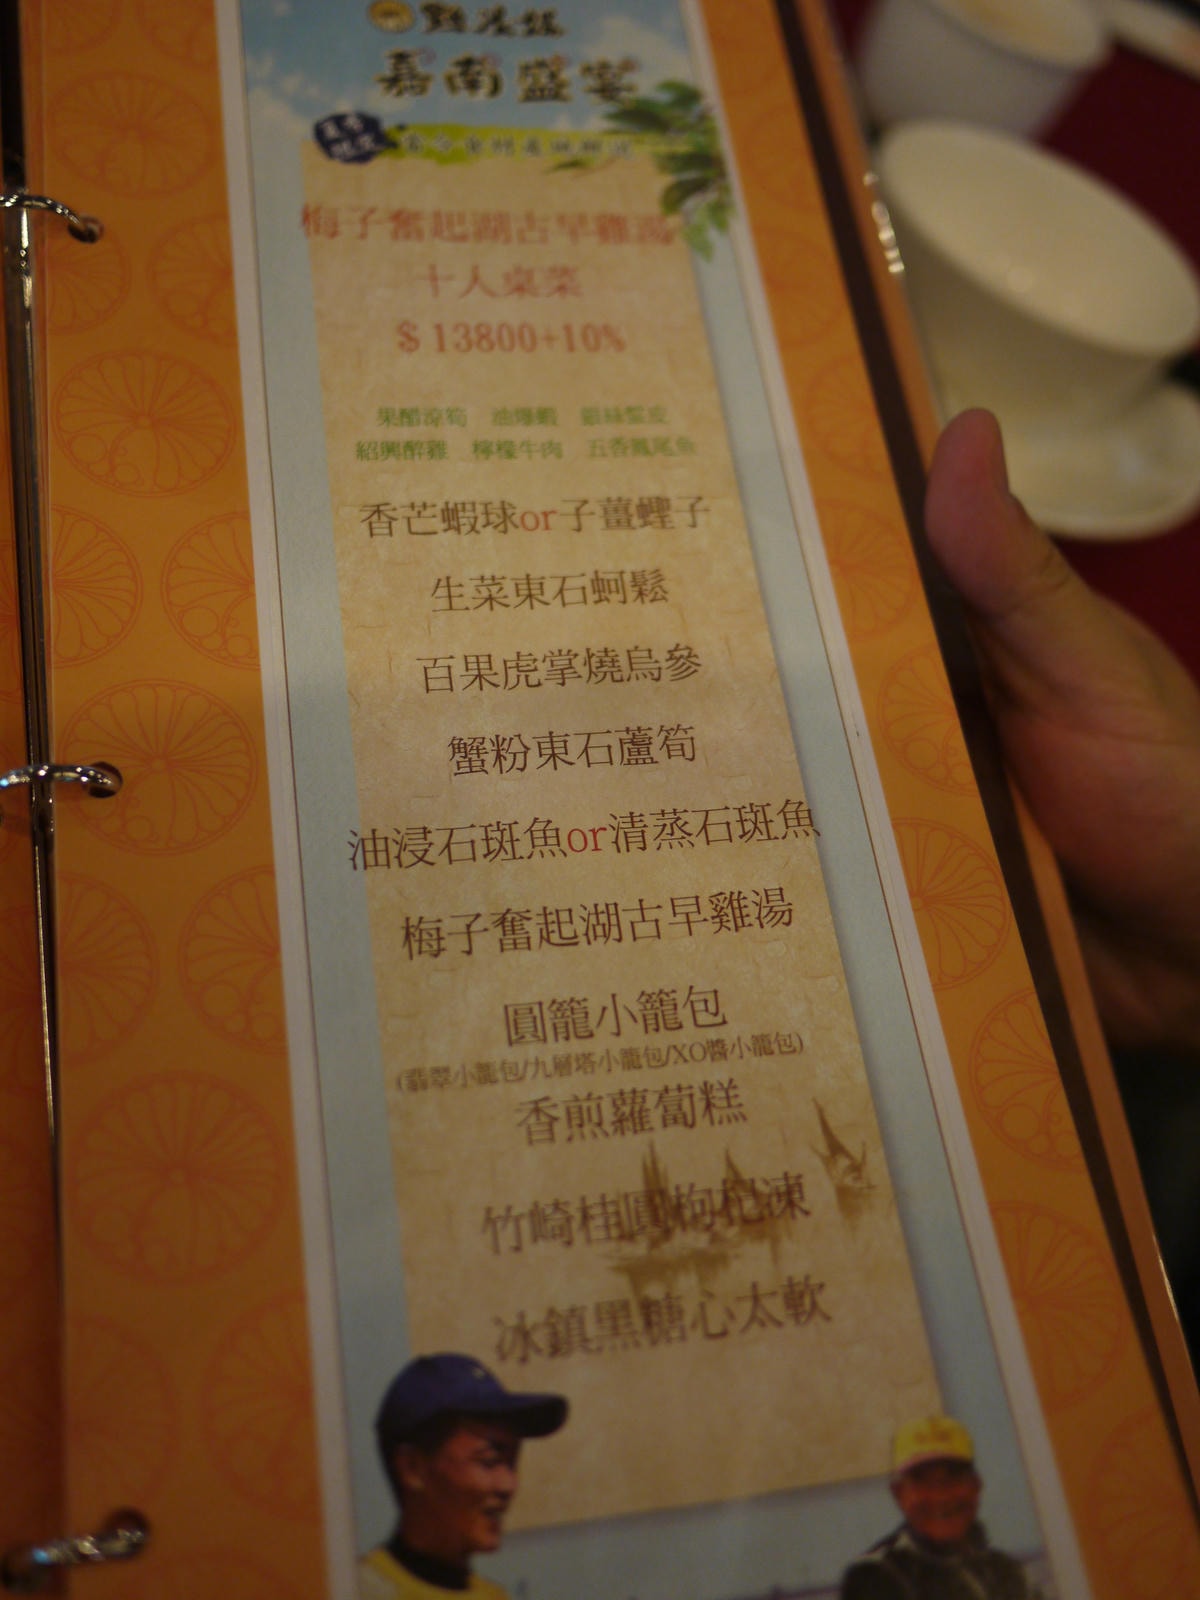 點水樓
嘉南盛宴
梅子奮起湖古早雞湯
十人桌菜
$ 13800+10%
果醋涼筍 油爆蝦 銀絲蜇皮
紹興醉雞 檸檬牛肉 五香鳳尾魚
香芒蝦球or子薑蟶子
生菜東石蚵鬆
百果虎掌燒烏參
蟹粉東石蘆筍
油浸石斑魚or清蒸石斑魚
梅子奮起湖古早雞湯
圓籠小籠包
(翡翠小籠包/九層塔小籠包/XO醬小籠包)
香煎蘿蔔糕
竹崎桂圓枸杞凍
冰鎮黑糖心太軟